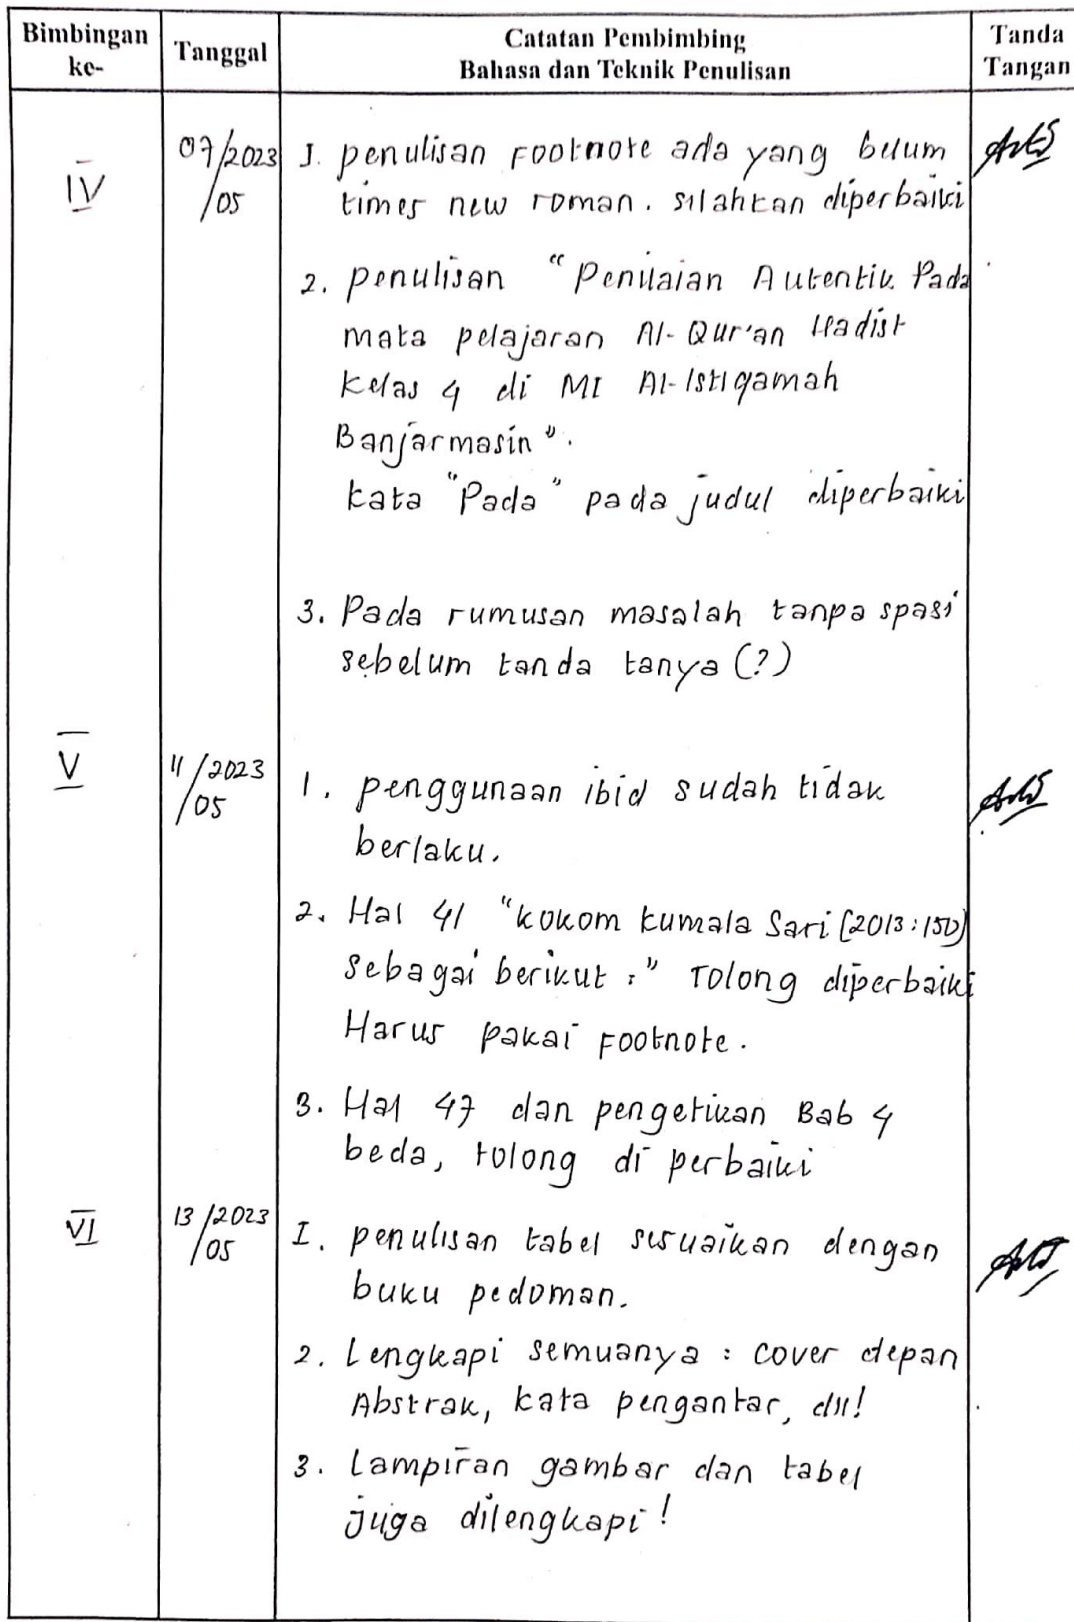 Bimbingan ke-
Tanggal
Catatan Pembimbing
Bahasa dan Teknik Penulisan
Tanda Tangan
IV
07/2023
/05
1. penulisan Footnote ada yang belum
times new roman. silahkan diperbaiki
2. penulisan "Penilaian Autentik Pada
mata pelajaran Al-Qur'an Hadist
Kelas 4 di MI Al-Istiqamah
Banjarmasin".
kata "Pada" pada judul diperbaiki
3. Pada rumusan masalah tanpa spasi
sebelum tanda tanya (?)
V
11/2023
/05
1. penggunaan ibid sudah tidak
berlaku.
2. Hal 41 "kokom kumala Sari (2013:150)
sebagai berikut :" Tolong diperbaiki
Harus pakai Footnote.
3. Hal 47 dan pengetikan Bab 4
beda, tolong di perbaiki
VI
13/2023
/05
I. penulisan tabel sesuaikan dengan
buku pedoman.
2. Lengkapi semuanya : cover depan
Abstrak, kata pengantar, dll!
3. Lampiran gambar dan tabel
juga dilengkapi!